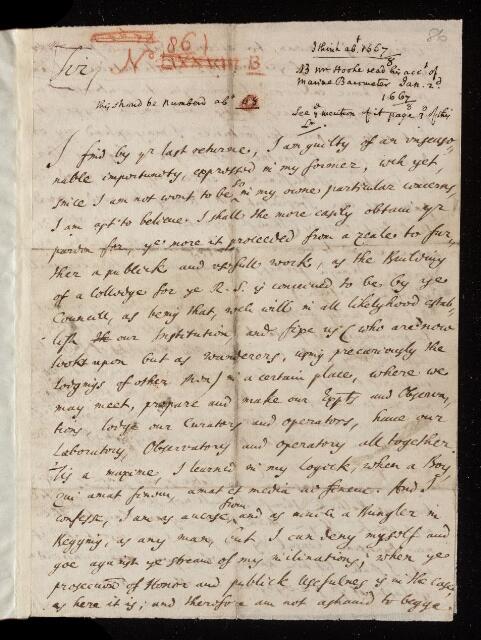 86
86)
Sir,
No LXXXVII B
I think abt. 1667/8
NB Mr Hooke read his acct. of
Marine Barometer Jan. 2d.
1667/8
See ye mention of it page 2d. of this
Lr.
This should be numberd abt.
I find by yr last returne, I am guilty of an unseaso-
nable importunity, expressed in my former, wch yet,
since I am not wont to be so in my owne particular concerns,
I am apt to believe I shall the more easily obtain yr
pardon for, ye more it proceeded from a zeale to fur-
ther a publick and usefull work, as the Building
of a Colledge for ye R. S. is conceived to be by ye
Councill, as being that, wch will in all likelyhood estab-
lish our Institution and fixe us (who are now
lookt upon but as wanderers, using precariously the
Lodgings of other men) in a certain place, where we
may meet, prepare and make our Expts and Observa-
tions, lodge our Curators and operators, have our
Laboratory, Observatory and operatory all together.
'Tis a maxime, I learned in my Logick, when a Boy,
Qui amat finem, amat et media ad finem. And I
confesse, I am as averse from, and as much a Bungler in
Begging, as any man, but I can deny myself and
goe against ye streame of my inclinations, when ye
prosecution of Honor and publick Usefulness is in the Case,
as here it is; and therefore am not ashamd to begge